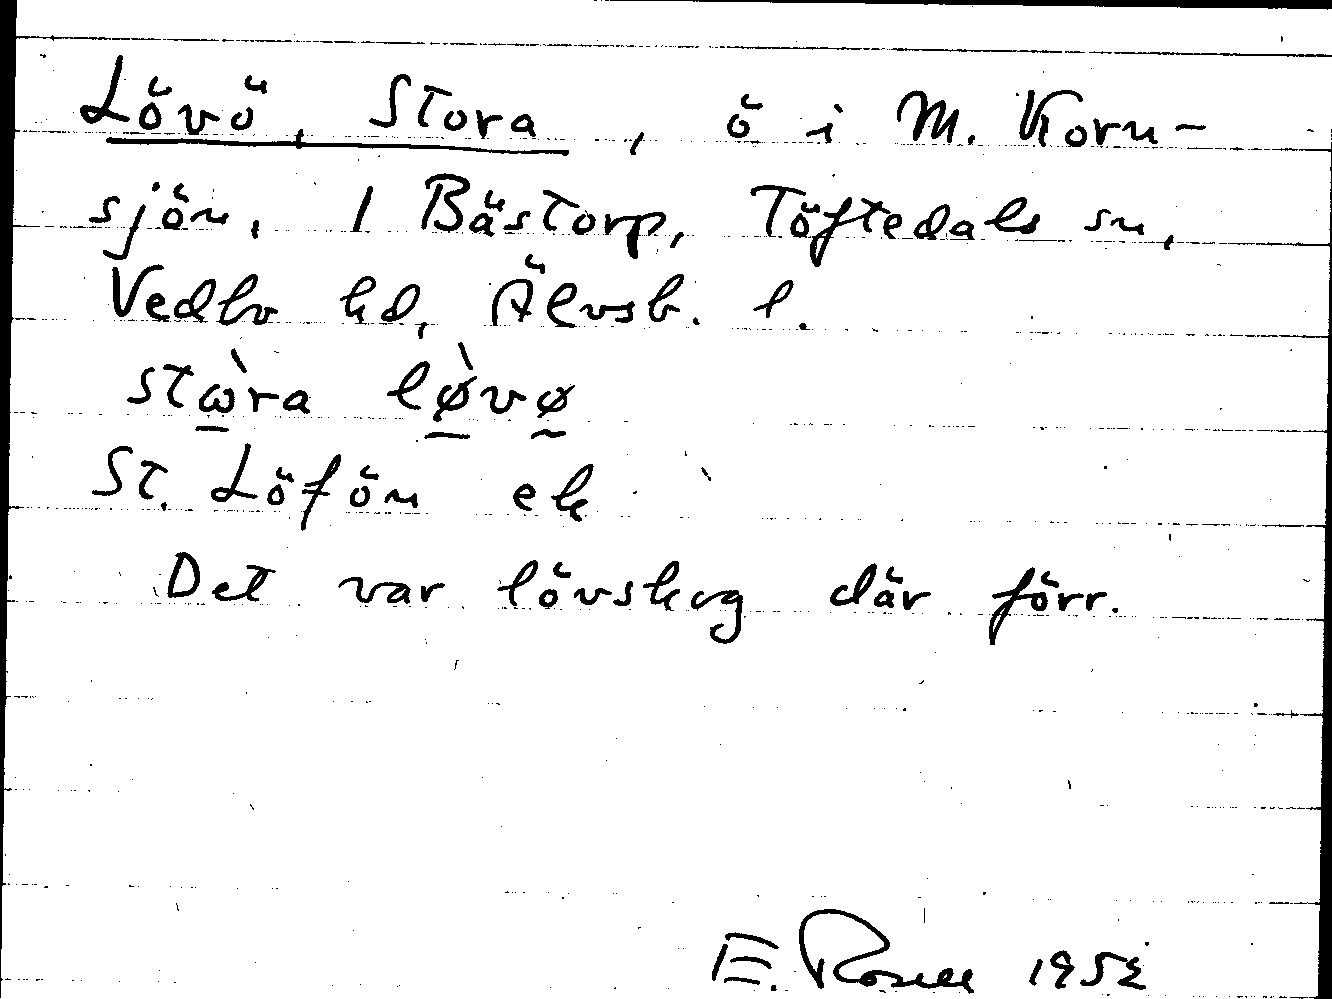 Lövö, Stora, ö i M. Korn-
sjön, 1 Bästorp, Töftedals sn,
Vedbo hd, Älvsb. l.
stὼra lø̀vø
St. Löfön ek
Det var lövskog där förr.
E. Rosell 1952